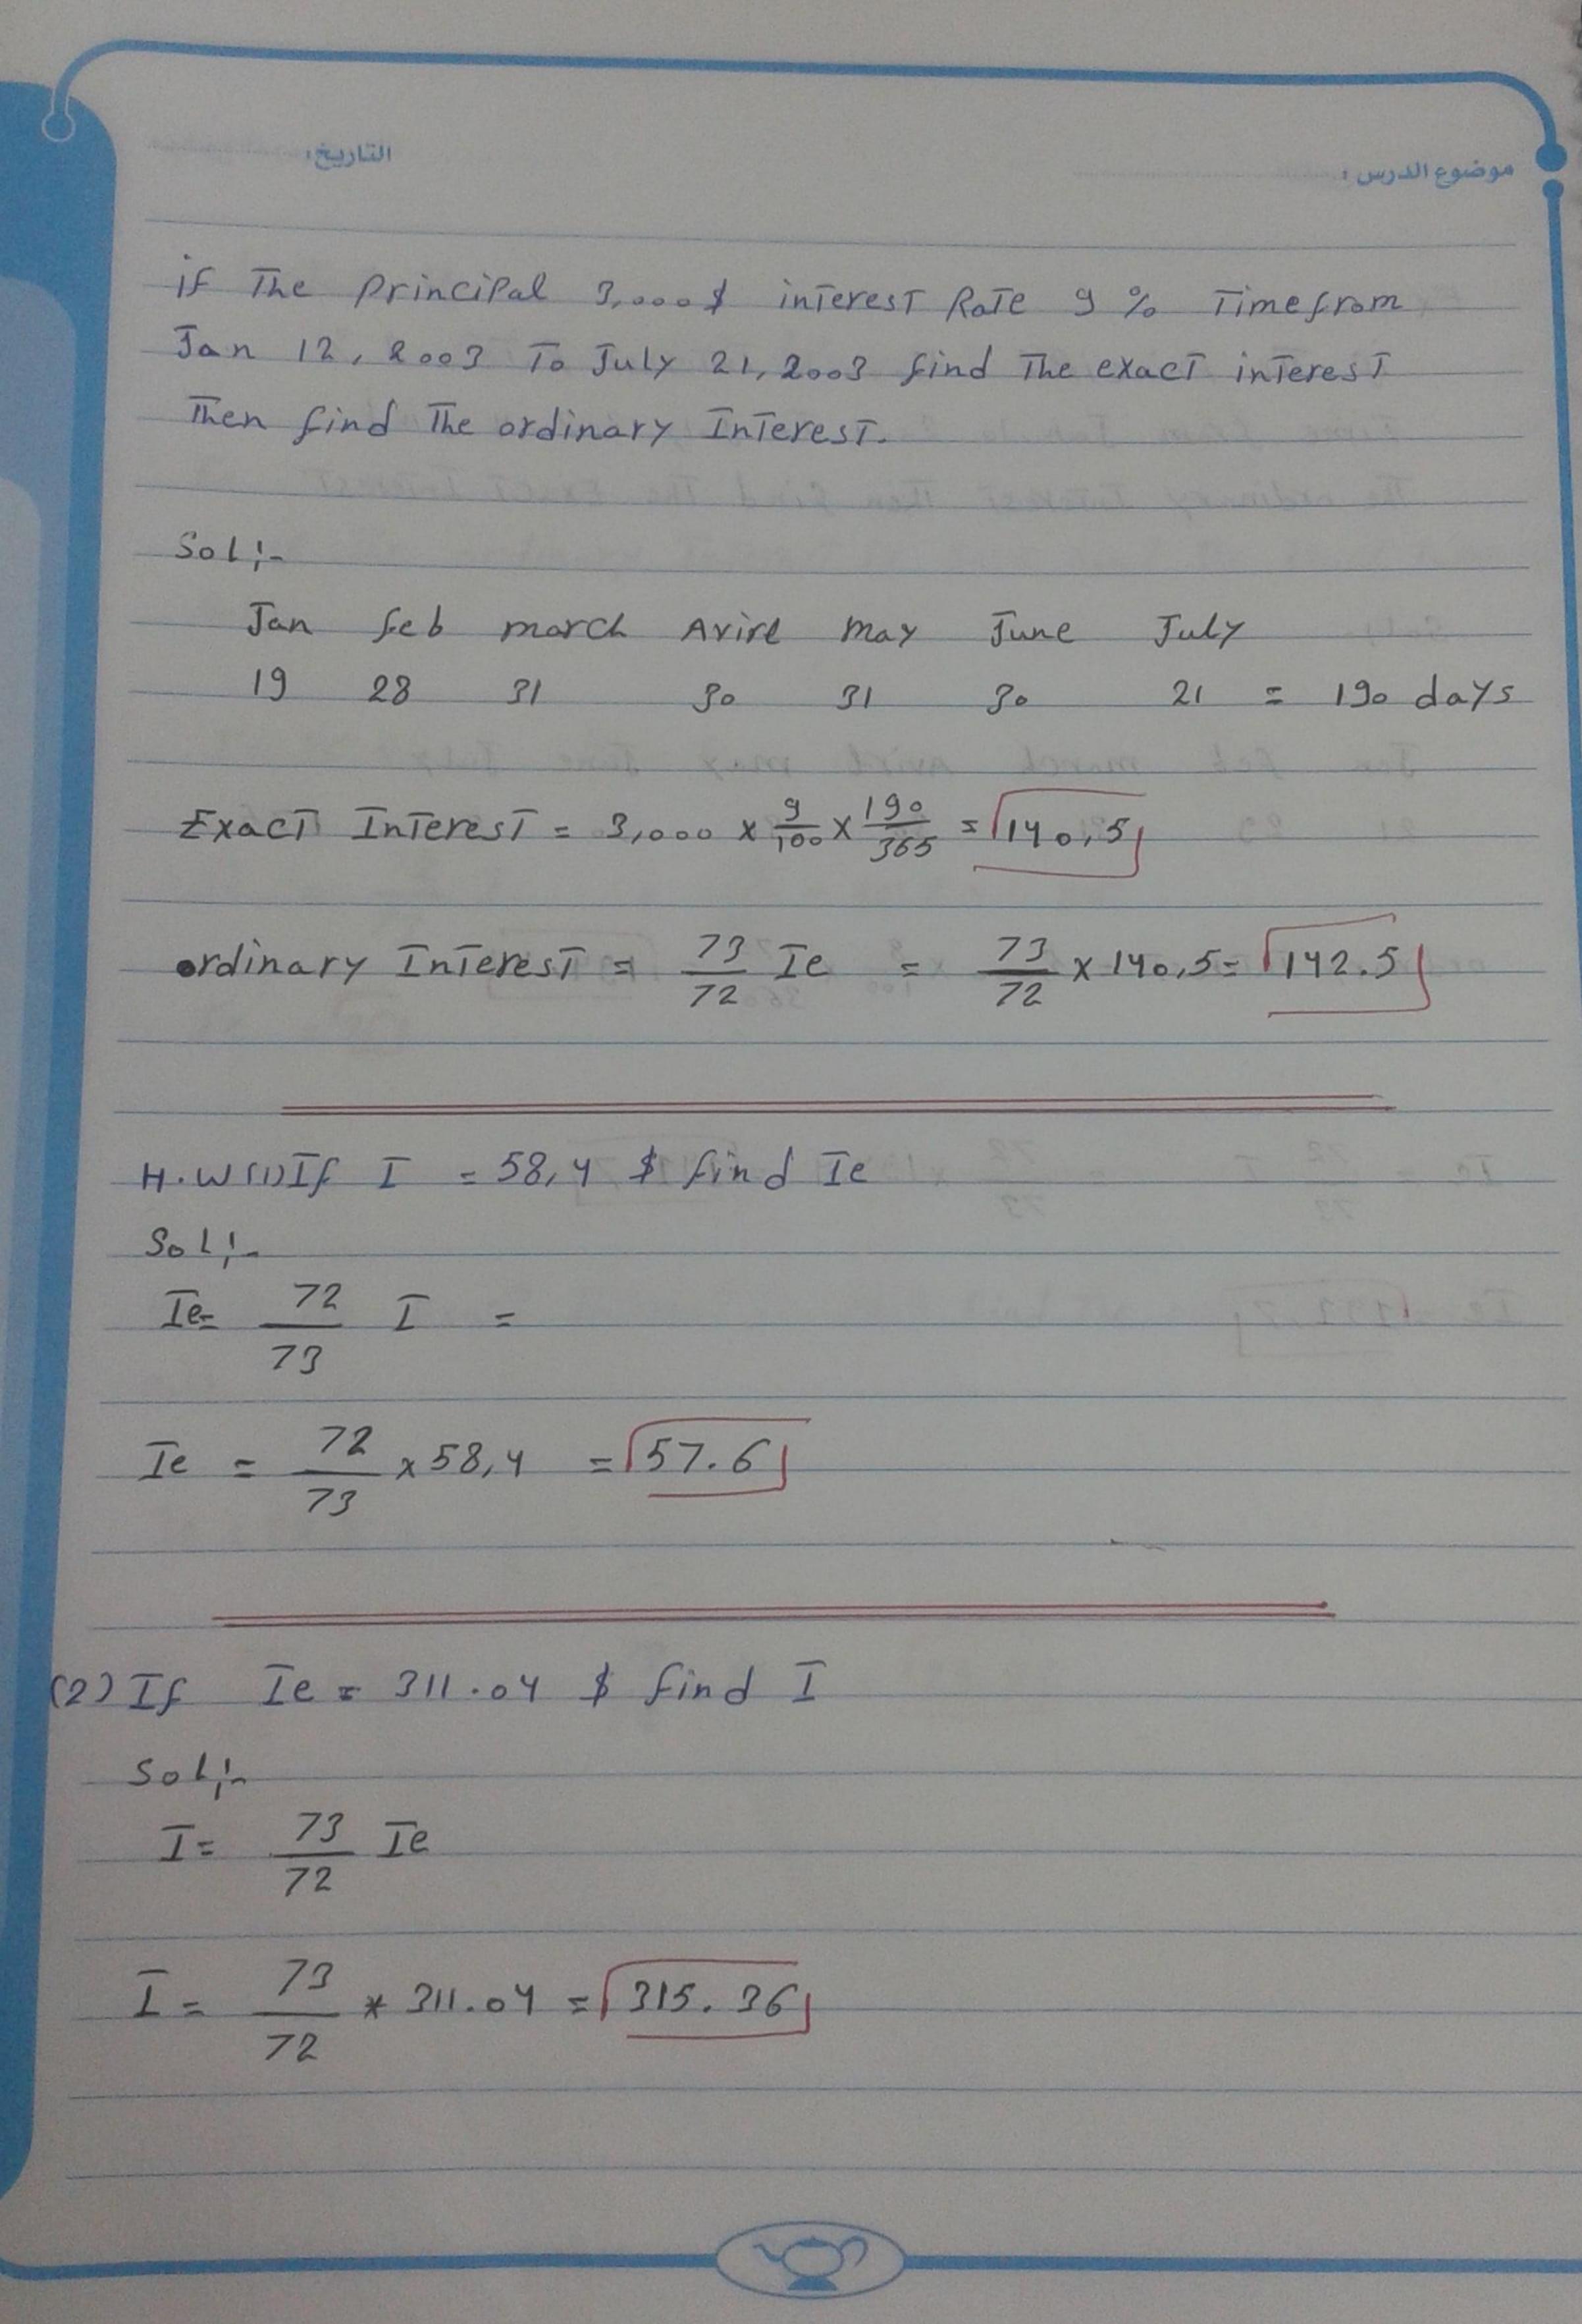 التاريخ:
موضوع الدرس:
if The principal 3,000$ interest Rate 9 % Time from
Jan 12, 2003 To July 21, 2003 find The exact interest
Then find The ordinary Interest.
Sol:-
Jan feb march Avirl may June July
19 28 31 30 31 30 21 = 190 days
Exact Interest = 3,000 x 9/100 x 190/365 = 140,5
ordinary Interest = 73/72 Ie = 73/72 x 140,5 = 142.5
H.W (1) If I = 58,4 $ find Ie
Sol:-
Ie= 72/73 I =
Ie = 72/73 x 58,4 = 57.6
(2) If Ie = 311.04 $ find I
Sol:-
I= 73/72 Ie
I = 73/72 * 311.04 = 315.36